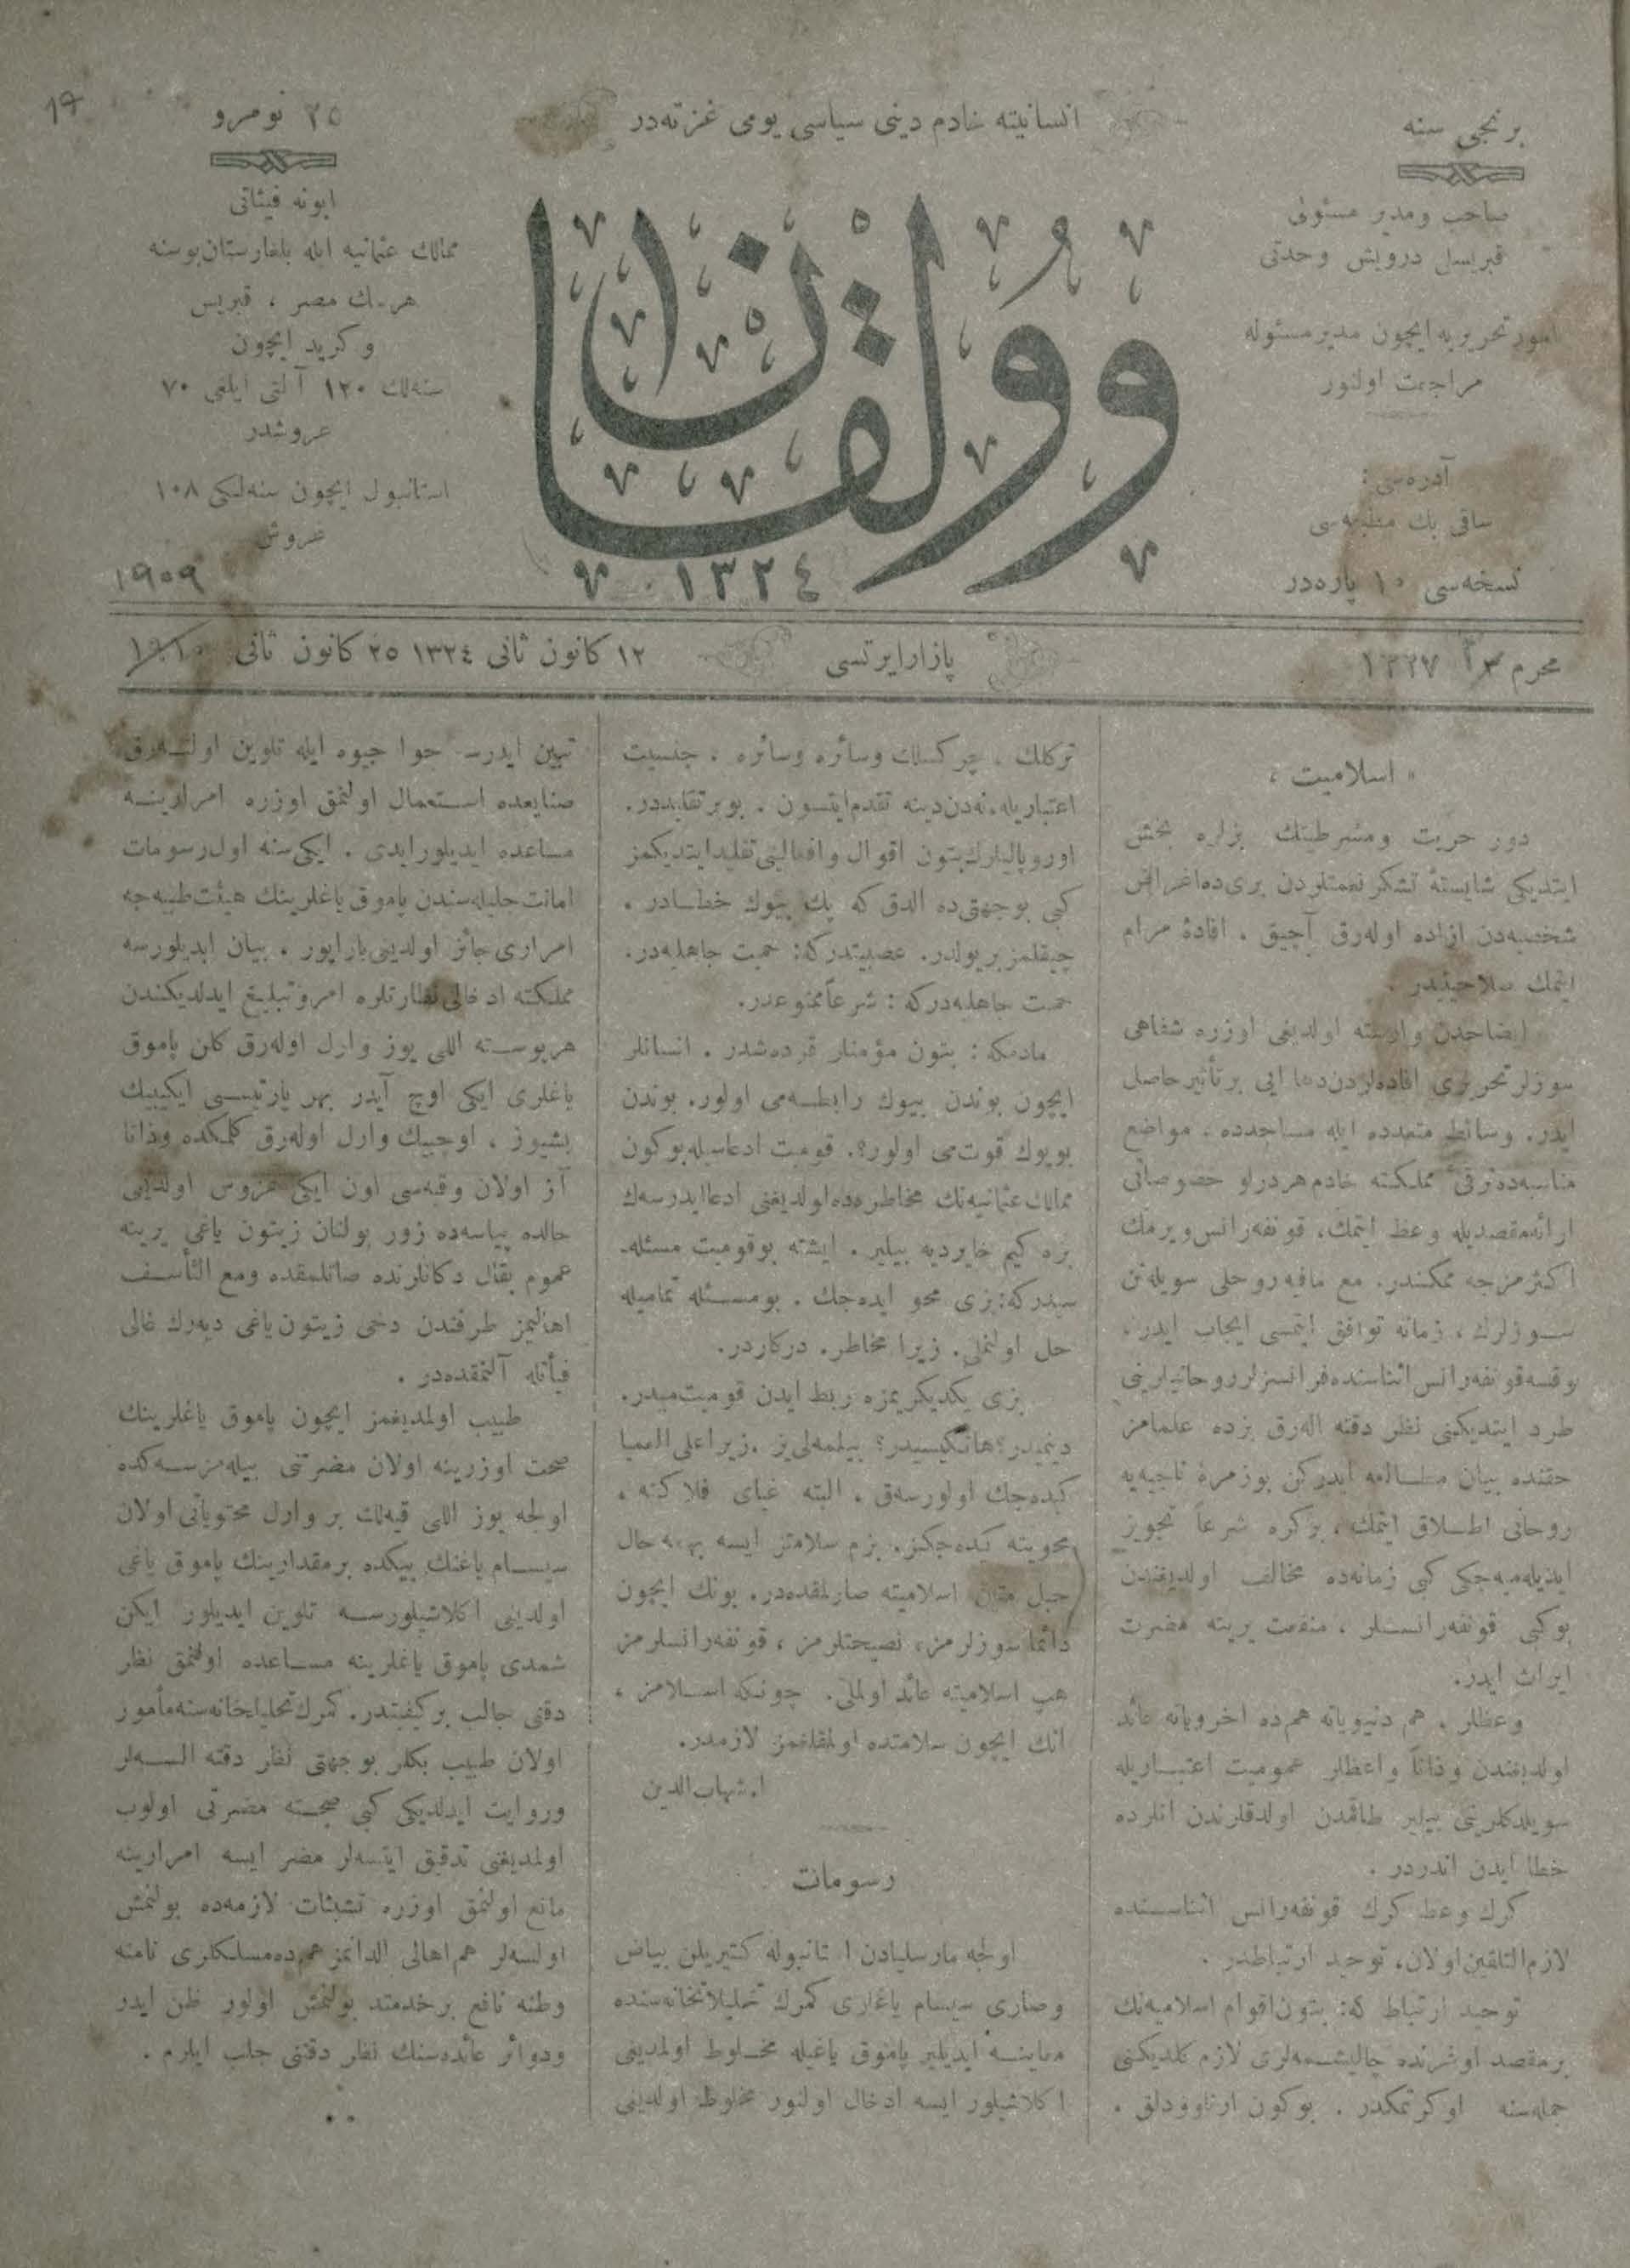 برنجی سنه
انسانیته خادم دینی سیاسی یومی غزته‌در
٢٥ نومرو
19
صاحب ومدیر مسئولی
قبریسلی درویش وحدتی
امور تحریریه ایچون مدیر مسئوله
مراجعت اولنور
آدره‌سی :
ساقی بك مطبعه‌سی
نسخه‌سی ١٠ پاره‌در
وولقان
١٣٢٤
ابونه فیئاتی
ممالك عثمانیه ایله بلغارستان بوسنه
هرسك مصر ، قبریس
و کرید ایچون
سنه‌لك ١٢٠ آلتی ایلغی ٧٠
غروشدر
استانبول ایچون سنه‌لكی ١٠٨
غروش
١٩٠٩
محرم ١٣٢٧
پازار ایرتسی
١٢ کانون ثانی ١٣٢٤ ٢٥ کانون ثانی
« اسلامیت »
دور حریت ومشروطیتك بزلره بخش
ایتدیکی شایستۀ تشکر نعمتلردن بری‌ده اغراض
شخصیه‌دن ازاده اوله‌رق آچیق . افادۀ مرام
ایتمك صلاحیتیدر .
ایضاحدن وارسته اولدیغی اوزره شفاهی
سوزلر تحریری افاده‌لردن دها ایی بر تأثیر حاصل
ایدر. وسائط متعدده ایله مساجدده ، مواضع
مناسبه‌ده ترقئ مملکته خادم هر درلو خصوصاتی
ارائه مقصدیله وعظ ایتمك، قونفه‌رانس ویرمك
اکثرمزجه ممکندر. مع مافیه روحلی سویله‌نن
سوزلرك ، زمانه توافق ایتمسی ایجاب ایدر.
قونفه‌رانس اثناسنده فرانسزلر روحانیلرینی
طرد ایتدیکنی نظر دقته اله‌رق بزده علمامز
حقنده بیان مطالعه ایدرکن بو زمرۀ ناجیه‌یه
روحانی اطلاق ایتمك ، بزکره شرعاً تجویز
ایدیله‌میه‌جکی کبی زمانه‌ده مخالف اولدیغندن
بو کبی قونفه‌رانسلر ، منفعت یرینه مضرت
ایراث ایدر.
وعظلر ، هم دنیویاته هم‌ده اخرویاته عائد
اولدیغندن وذاتاً واعظلر عمومیت اعتباریله
سویلدکلرینی بیلیر طاقمدن اولدقلرندن انلرده
خطا ایدن اندردر .
کرك وعظ کرك قونفه‌رانس اثناسنده
لازم التلقین اولان، توحید ارتباطدر .
توحید ارتباط که: بتون اقوام اسلامیه‌نك
بر مقصد اوغرنده چالیشمه‌لری لازم کلدیکنی
جمله‌سنه اوکرتمکدر . بوکون ارناوودلق .
ترکلك ، چرکسلك وسائره وسائره ، جنسیت
اعتباریله، نه‌دن دینه تقدم ایتسون . بو بر تقلیددر.
اوروپالیلرك بتون اقوال وافعالینی تقلید ایتدیکمز
کبی بو جهتی‌ده الدق که پك بیوك خطادر .
چیقلمز بر یولدر. عصبیتدرکه: حمیت جاهلیه‌در.
حمیت جاهلیه‌درکه : شرعاً ممنوعدر.
مادمکه : بتون مؤمنلر قرده‌شدر . انسانلر
ایچون بوندن بیوك رابطه‌می اولور. بوندن
بویوك قوت‌می اولور؟. قومیت ادعاسیله بوکون
ممالك عثمانیه‌نك مخاطره‌ده اولدیغنی ادعا ایدرسه‌ك
بزه کیم خایر دیه بیلیر . ایشته بو قومیت مسئله‌-
سیدرکه: بزی محو ایده‌جك . بو مسئله تمامیله
حل اولنملی. زیرا مخاطر. درکاردر.
بزی یکدیکریمزه ربط ایدن قومیت‌میدر.
دینمیدر؟ هانکیسیدر؟ بیلمه‌لی‌یز . زیرا علی العمیا
کیده‌جك اولورسه‌ق ، البته غیای فلاکته ،
محویته کیده‌جکز. بزم سلامتمز ایسه بهمه حال
حبل متین اسلامیته صارلمقده‌در. بونك ایچون
دائما سوزلرمز، نصیحتلرمز ، قونفه‌رانسلرمز
هپ اسلامیته عائد اولملی. چونکه اسلامز ،
انك ایچون سلامتده اولمقلغمز لازمدر.
ا. شهاب الدین
رسومات
اولجه مارسلیادن استانبوله کتیریلن بیاض
وصاری سیسام یاغلری کمرك تحلیلاتخانه‌سنده
معاینه ایدیلیر پاموق یاغیله مخلوط اولمدیغی
اکلاشیلور ایسه ادخال اولنور مخلوط اولدیغی
تبین ایدرسه حوا جیوه ایله تلوین اولنه‌رق
صنایعده استعمال اولنمق اوزره امرارینه
مساعده ایدیلور ایدی . ایکی سنه اول رسومات
امانت جلیله‌سندن پاموق یاغلرینك هیئت طبیه‌جه
امراری جائز اولدیغی با راپور . بیان ایدیلورسه
مملکته ادخالی نظارتلره امر وتبلیغ ایدلدیکندن
هر پوسته اللی یوز وارل اوله‌رق کلن پاموق
یاغلری ایکی اوچ آیدر بهر پارتیسی ایکیبیك
بشیوز ، اوچبیك وارل اوله‌رق کلمکده وذاتا
آز اولان وقیه‌سی اون ایکی غروس اولدیغی
حالده پیاسه‌ده زور بولنان زیتون یاغی یرینه
عموم بقال دکانلرنده صاتلمقده ومع التأسف
اهالیمز طرفندن دخی زیتون یاغی دیه‌رك غالی
فیأتله آلنمقده‌در .
طبیب اولمدیغمز ایچون پاموق یاغلرینك
صحت اوزرینه اولان مضرتنی بیله‌مزسه‌كده
اولجه یوز اللی قیه‌لك بر وارل محتویاتی اولان
سیسام یاغنك بیکده بر مقدارینك پاموق یاغی
اولدیغی اکلاشیلورسه تلوین ایدیلور ایکن
شمدی پاموق یاغلرینه مساعده اولنمق نظر
دقتی جالب بر کیفیتدر. کمرك تحلیلاتخانه‌سنه مأمور
اولان طبیب بکلر بو جهتی نظر دقته السه‌لر
وروایت ایدلدیکی کبی صحته مضرتی اولوب
اولمدیغنی تدقیق ایتسه‌لر مضر ایسه امرارینه
مانع اولنمق اوزره تشبثات لازمه‌ده بولنمش
اولسه‌لر هم اهالی الدانمز هم‌ده مسلکلری نامنه
وطنه نافع بر خدمتد بولنمش اولور ظن ایدر
ودوائر عائده‌سنك نظر دقتنی جلب ایلرم .